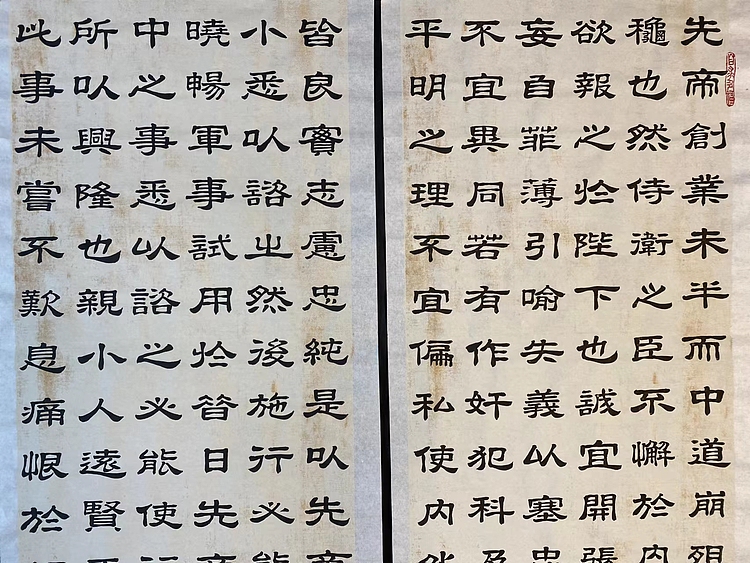 先帝創業未半而中道崩殂
龝也然侍衛之臣不懈於内
欲報之於陛下也誠宜開張
妄自菲薄引喻失義以塞忠
不宜異同若有作奸犯科及
平明之理不宜偏私使内外
皆良實志慮忠純是以先帝
小悉以諮之然後施行必能
曉暢軍事試用於昔日先帝
中之事悉以諮之必能使行
所以興隆也親小人遠賢
此事未嘗不歎息痛恨於